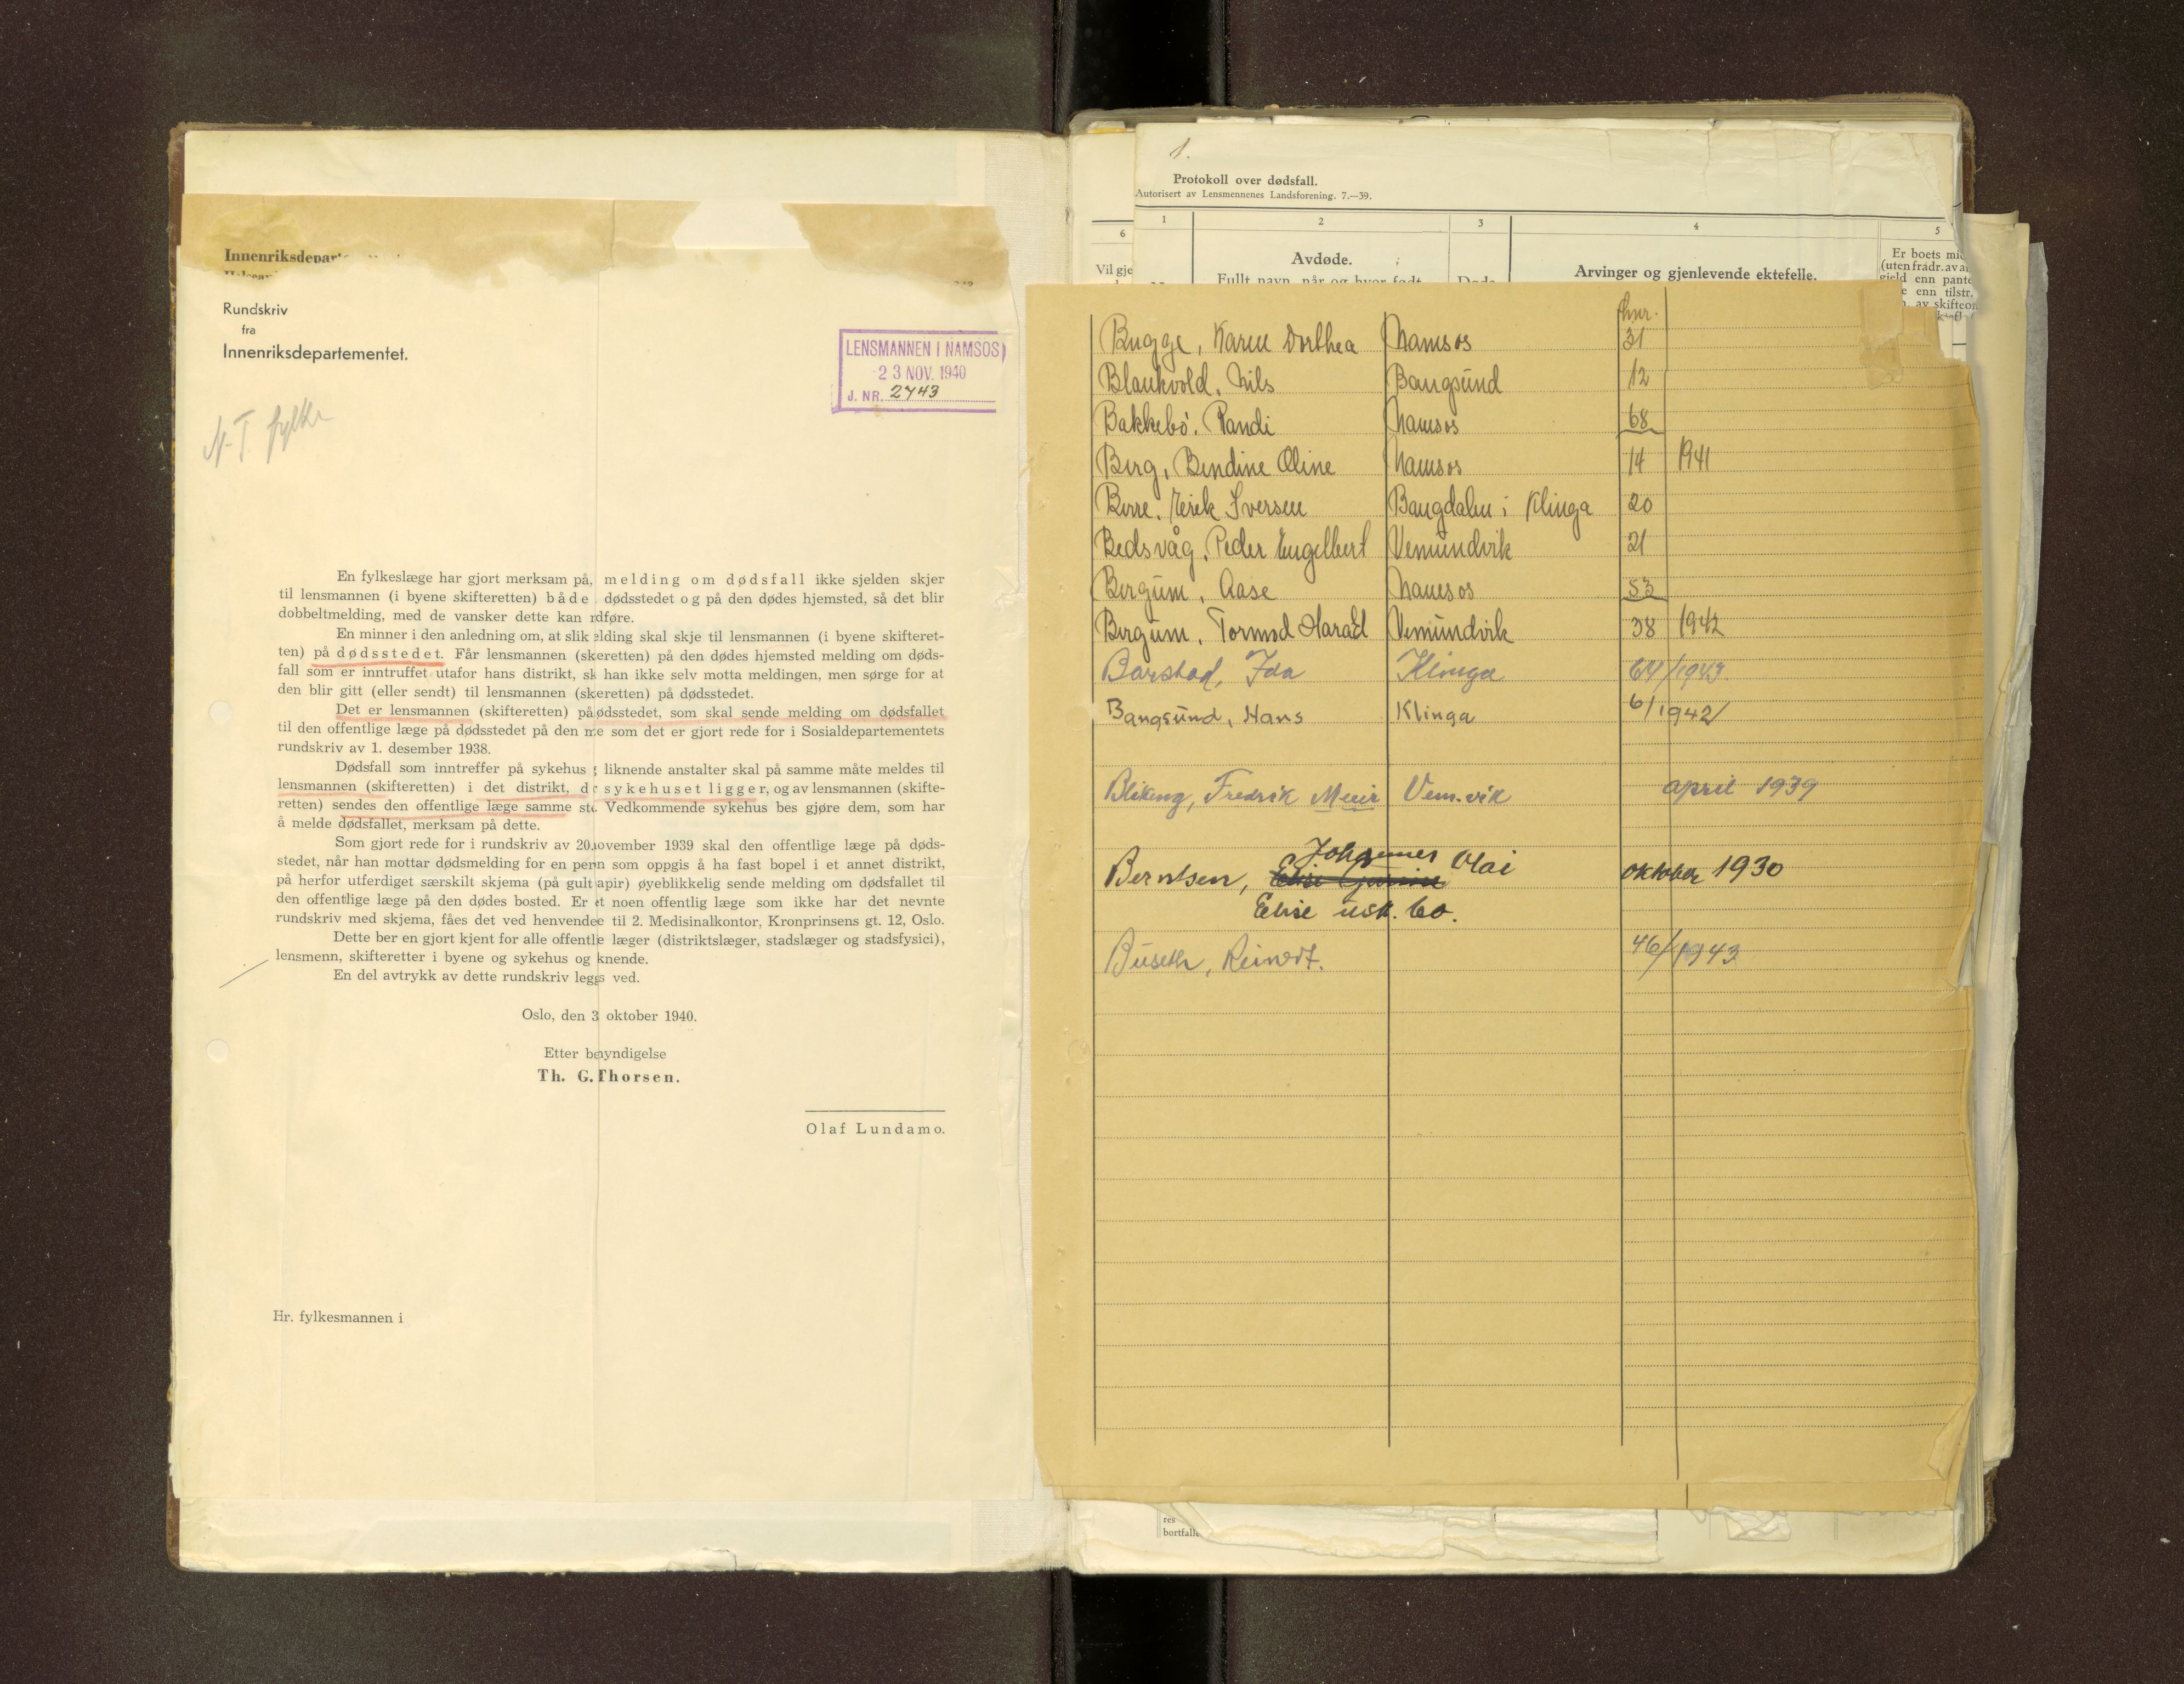 Innenriksdepart
Rundskriv
fra
Innenriksdepartementet.
LENSMANNEN I NAMSOS
23 NOV. 1940
J. NR. 2743
N-T. fylke
En fylkeslæge har gjort merksam på, melding om dødsfall ikke sjelden skjer
til lensmannen (i byene skifteretten) både dødsstedet og på den dødes hjemsted, så det blir
dobbeltmelding, med de vansker dette kan dføre.
En minner i den anledning om, at slik elding skal skje til lensmannen (i byene skifteret-
ten) på dødsstedet. Får lensmannen (skeretten) på den dødes hjemsted melding om døds-
fall som er inntruffet utafor hans distrikt, sk han ikke selv motta meldingen, men sørge for at
den blir gitt (eller sendt) til lensmannen (skeretten) på dødsstedet.
Det er lensmannen (skifteretten) på ødsstedet, som skal sende melding om dødsfallet
til den offentlige læge på dødsstedet på den me som det er gjort rede for i Sosialdepartementets
rundskriv av 1. desember 1938.
Dødsfall som inntreffer på sykehus liknende anstalter skal på samme måte meldes til
lensmannen (skifteretten) i det distrikt, d sykehuset ligger, og av lensmannen (skifte-
retten) sendes den offentlige læge samme ste Vedkommende sykehus bes gjøre dem, som har
å melde dødsfallet, merksam på dette.
Som gjort rede for i rundskriv av 20. november 1939 skal den offentlige læge på døds-
stedet, når han mottar dødsmelding for en pern som oppgis å ha fast bopel i et annet distrikt,
på herfor utferdiget særskilt skjema (på gult apir) øyeblikkelig sende melding om dødsfallet til
den offentlige læge på den dødes bosted. Er et noen offentlig læge som ikke har det nevnte
rundskriv med skjema, fåes det ved henvendee til 2. Medisinalkontor, Kronprinsens gt. 12, Oslo.
Dette ber en gjort kjent for alle offentle læger (distriktslæger, stadslæger og stadsfysici),
lensmenn, skifteretter i byene og sykehus og knende.
En del avtrykk av dette rundskriv leggs ved.
Oslo, den 3 oktober 1940.
Etter bemyndigelse
Th. G. Thorsen.
Olaf Lundamo.
Hr. fylkesmannen i
1.
Protokoll over dødsfall.
Autorisert av Lensmennenes Landsforening. 7.—39.
6 1 2 3 4 5
Vil gje
Avdøde.
Fullt navn, når og hvor født
Døds
Arvinger og gjenlevende ektefelle.
Er boets mi
(uten fradr. av a
gjeld enn pante
e enn tilstr.
av skifteom
Bugge, Karen Dorthea Namsos 31
Blankvold, Nils Bangsund 12
Bakkebö, Randi Namsos 68
Berg, Bendine Oline Namsos 14 1941
Berre, Eirik Iversen Bangdalen i Klinga 20
Bedsvåg, Peder Engelbert Vemundvik 21
Bergum, Aase Namsos 53
Bergum, Tormod Harald Vemundvik 38 1942
Barstad, Ida Klinga 64/1943.
Bangsund, Hans Klinga 6/1942
Bliking, Fredrik Meier Vem.vik april 1939
Johannes
Berntsen, Elise Olai oktober 1930
Elise usk. bo.
Buseth, Reinert. 46/1943
res
bortfalle